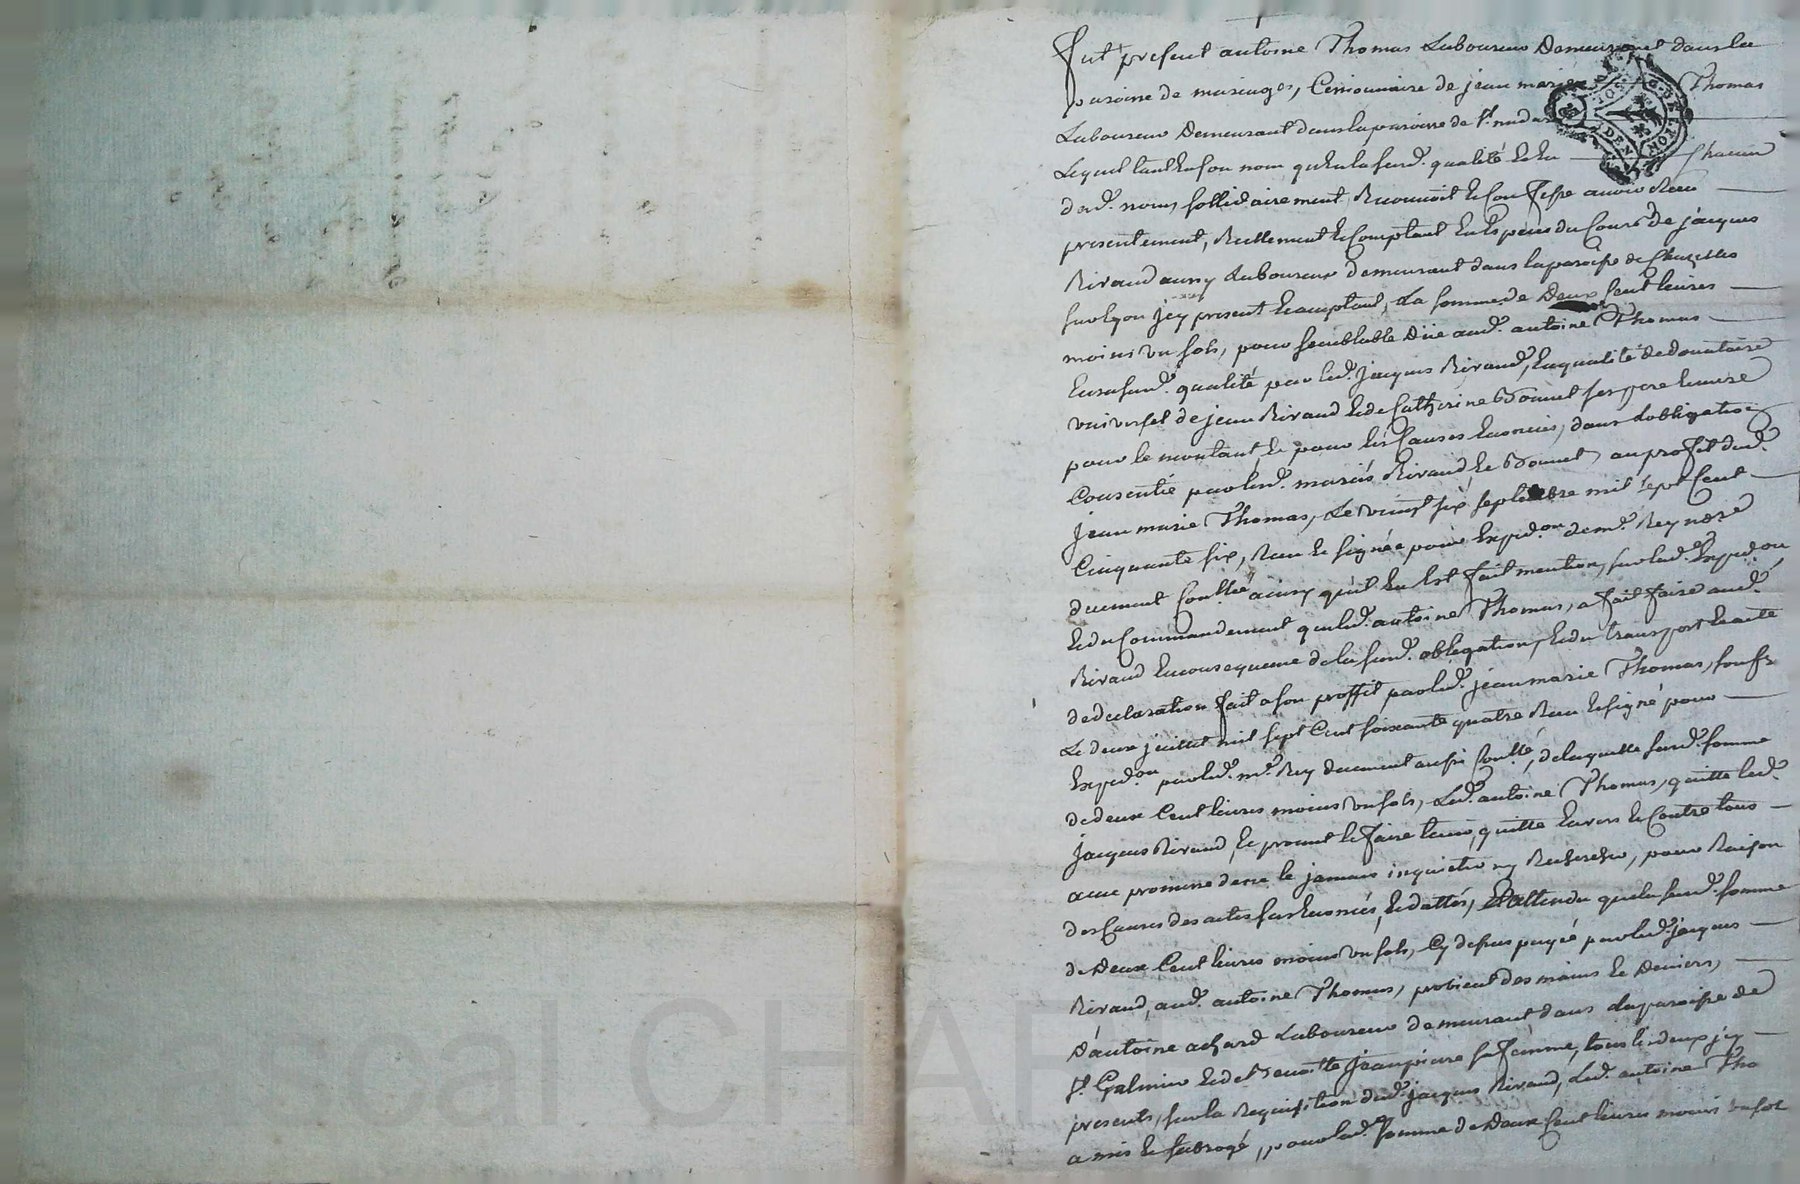 Fut present antoine Thomas Laboureur Demeurant dans la
paroisse de maringes, Cessionnaire de jean marie Thomas
Laboureur Demeurant dans la paroisse de St.
Lequel tant en son nom qu'en la susd. qualité Et En chacun
desd. noms sollidairement, Reconnoit Et Confesse avoir Reçu
presentement, Reellement Et Comptant En Especes du Cours de jacques
Rivaud aussy Laboureur demeurant dans la paroisse de Chazelles
sur Lyon jcy present Et acceptant, La somme de Deux Cent livres
moins un sols, pour semblable Düe aud. antoine Thomas
En sa susd. qualité par led. jacques Rivaud, En qualité de donataire
universel de jean Rivaud Et de Catherine Bonnet ses pere Et mere
pour le montant, Et pour les Causes Enoncées, dans L'obligation
Consentie par lesd. mariés Rivaud, Et Bonnet, au profit dud.
jean marie Thomas, Le vingt six septembre mil sept Cent
Cinquante six, Reçu Et signée pour Exped.on de me. Rey nore
duement Conllé ainsy qu'il En Est fait mention, sur lad. Exped.on
Et du Commandement que led. antoine Thomas, a fait faire aud.
Rivaud En consequence de la susd. obligation, Et du transport Et acte
de declaration fait a son proffit par led. jean marie Thomas,
Le deux juillet mil sept Cent soixante quatre Reçu Et signé pour
Exped.on par led. me. Rey duement aussi Conllé, de laquelle susd. somme
de deux Cent livres moins un sols, Led. antoine Thomas, quitte led.
jacques Rivaud, Et promet le faire tenir, quitte Envers Et Contre tous
avec promesse de ne le jamais inquieter ny Rechercher, pour Raison
des Causes des actes sus Enoncés, Et dattés, Et attendu que la susd. somme
de Deux Cent livres moins un sols, Cy dessus payée par led. jacques
Rivaud, aud. antoine Thomas, provient des mains Et Deniers,
D'antoine achard Laboureur demeurant dans la paroisse de
St. Galmier Et de Benoitte jeanpierre sa femme, tous les deux jcy
presents, sur la Requisition dud. jacques Rivaud, Led. antoine Tho
a mis Et subrogé, pour lad. somme de Deux Cent livres moins un sol
Pascal CHAR